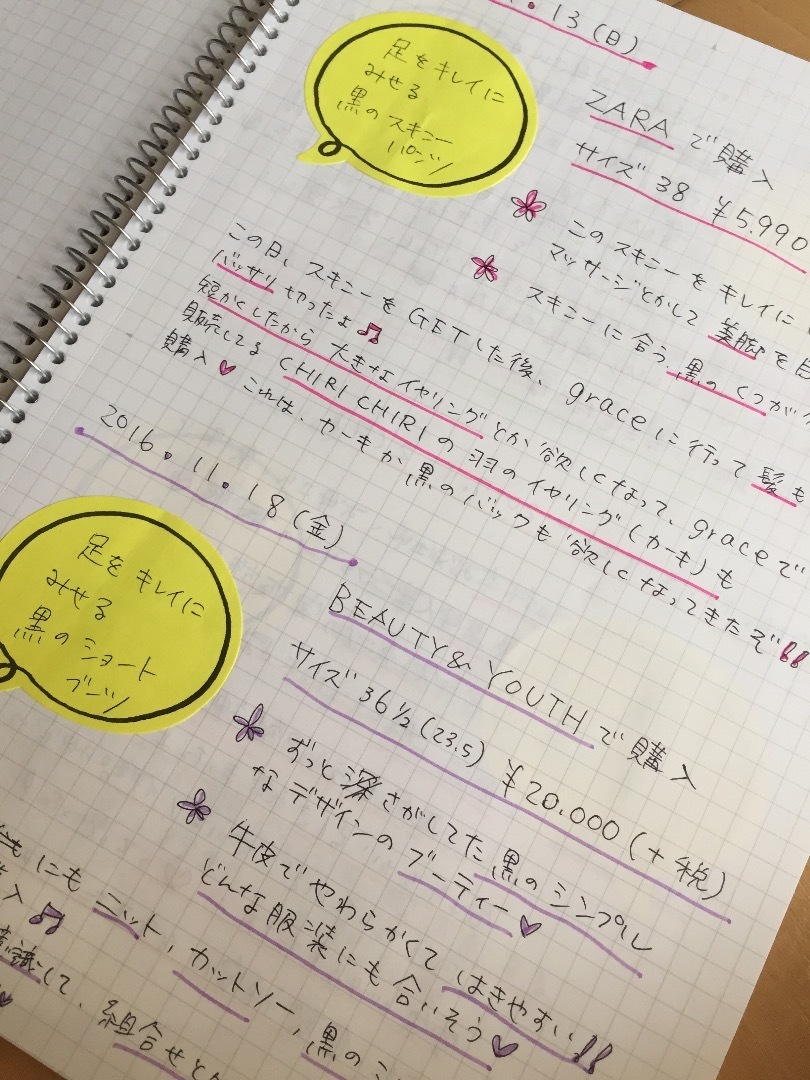 .13(日)
足をキレイに
みせる
黒のスキニー
パンツ
ZARAで購入
サイズ38 ¥5.990
このスキニーをキレイに
マッサージとかして美脚を
スキニーに合う、黒のくつが
この日、スキニーをGETした後、graceに行って髪も
バッサリ切ったよ♫
短かくしたから大きなイヤリングとか欲しくなって、graceで
販売してるCHIRI CHIRIの羽のイヤリング(カーキ)も
購入♥ これは、カーキか黒のバックも欲しくなってきたぞ!!
2016.11.18(金)
足をキレイに
みせる
黒のショート
ブーツ
BEAUTY & YOUTHで購入
サイズ36½(23.5) ¥20.000(+税)
ずっとさがしてた黒のシンプル
なデザインのブーティー♥
牛皮でやわらかくてはきやすい!!
どんな服装にも合いそう♥
にもニット、カットソー、黒の
入♫
識して、組合せとか